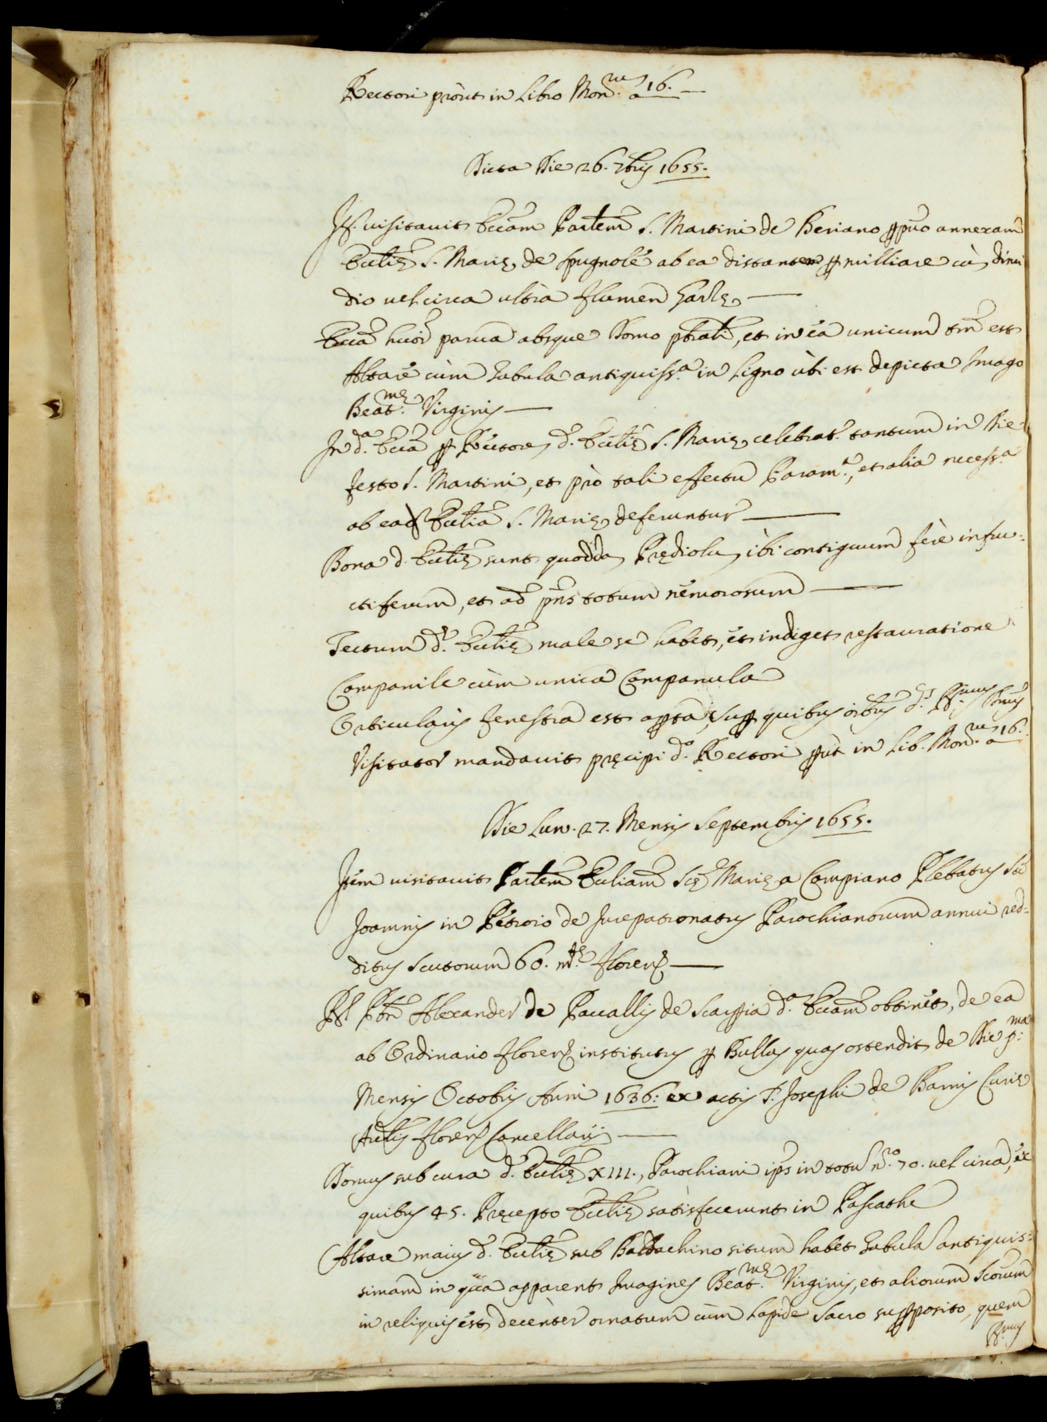 Rectori proùt in Libro Mon.rum a 16.
Dicta Die 26. 7bris 1655.
It. visitavit Ecc.am Paro.lem S. Martini de Beriano ppuo annexam
Eccliȩ S. Mariȩ de Spugnole ab ea distantem p milliare cù dimi
dio vel circa ultra flumen
Ecc.a huiõi parva absque Domo pbrali, et in ea unicum tm est
Altare cùm Tabula antiquiss.a in Ligno ùbi est depicta Imago
Beat.mȩ Virginis
In d.a Ecc.a p Rectorem d. Eccliȩ S. Mariȩ celebrat.r tantum in Die
festo S. Martini, et prò tali effectu Param.a, et alia necess.a
ab ead. Ecclia S. Mariȩ deferuntur
Bona d. Eccliȩ sunt quodda Prȩdiolu ibi contiguum ferè infru-
ctiferum, et ad pñs totum nemorosum
Tectum d. Eccliȩ male se habet, et indiget restauratione
Campanile cùm unica Campanula
Orbicularis fenestra est apta, sup quibus oibus d.s Ill.mus Dnus
Visitator mandavit prȩcipi d.o Rectori put in Lib. Mon.rum a 16.
Die Lun. 27. Mensis Septembris 1655.
Item visitavit Paro.lem Eccliam Sc.ȩ Mariȩ a Campiano Plebatus Sti
Joannis in Petroio de Jurepatronatus Parochianorum annui red-
ditus Scutorum 60. m.tȩ Floren.
R. Pbr Alexander de Pacallis de Scarperia d.a Ecc.am obtinet, de ea
ab Ordinario Floren. institutus p Bullas quas ostendit de Die p.ma
Mensis Octobris Anni 1636: ex actis D. Josephi de Barnis Curiȩ
Archlis Floren. Cancellarij
Domus sub cura d. Eccliȩ XIII., Parochiani ips in totu n.ro 70. vel circa, ex
quibus 45. Prȩcepto Eccliȩ satisfecerunt in Paschate
Altare maius d. Eccliȩ sub Baldachino situm habet Tabula antiquis-
simam in qua apparent Imagines Beat.mȩ Virginis, et aliorum Scorum
in reliquis est decenter ornatum cùm Lapide Sacro supposito, quem
Ill.mus